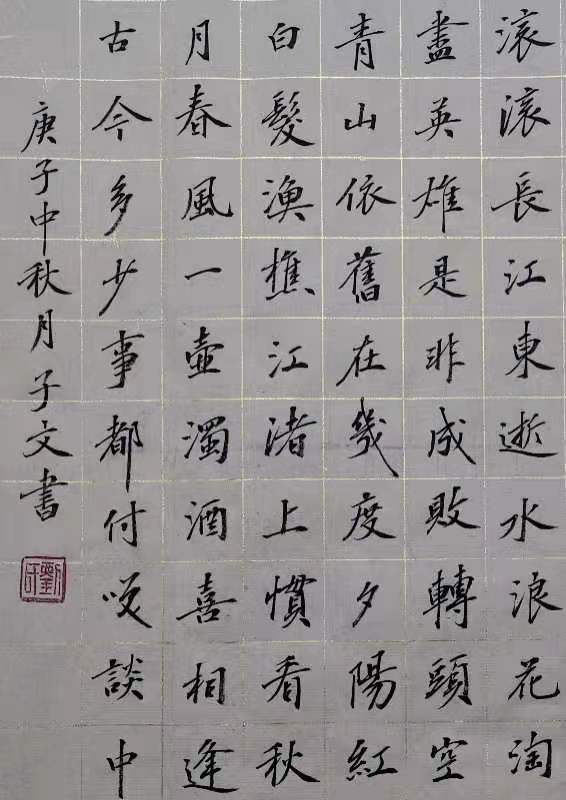 滚滚長江東逝水浪花淘
盡英雄是非成敗轉頭空
青山依舊在幾度夕陽紅
白髮漁樵江渚上慣看秋
月春風一壺濁酒喜相逢
古今多少事都付笑談中
庚子中秋月子文書